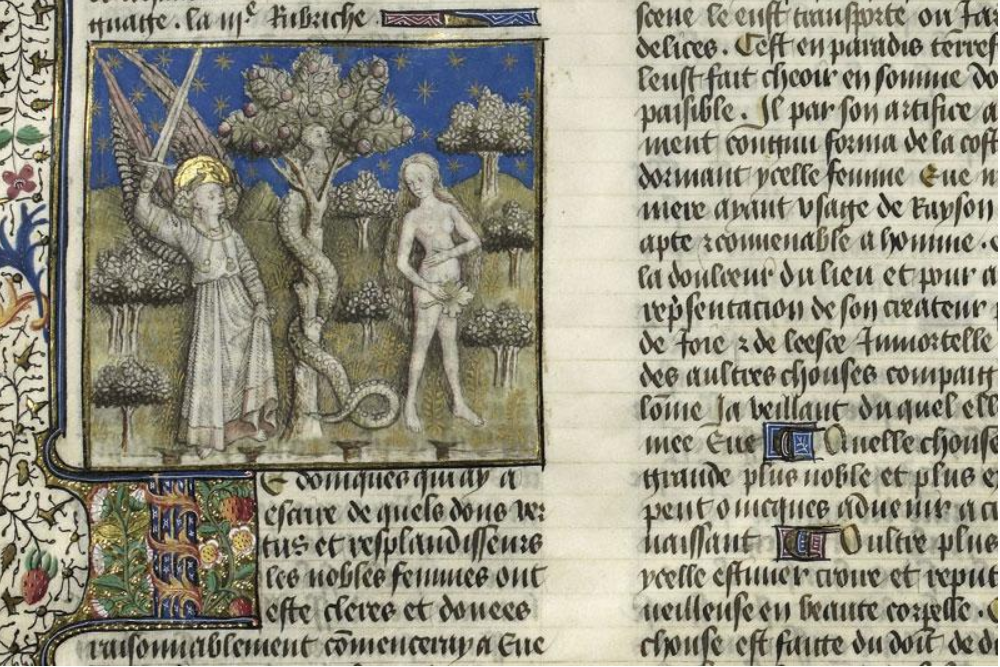 quaige . la iiie Rubriche .
E doncques qui ay a
escrire de quels dons ver
tus et resplandisseurs
les nobles femmes ont
este cleres et donees
raisonnablement cōmenceray a Eue
scene le eust transporte ou Jar
delices . Cest en paradis terres
leust fait cheoir en somme do
paisible . Il par son artifice a
ment congnu forma de la cost
dormant ycelle femme Eue n
mere ayant usage de Rayson
apte ⁊ conuenable a homme . e
la doulceur du lieu et pour a
rep̄sentacion de son createur
de Joie ⁊ de leesce Immortelle
des aultres chouses compaig
lōme Ja veillant du quel elle
mee Eue Quelle chouse
grande plus noble et plus e
peut oncques aduenir a c
naissant Oultre plus
ycelle estimer croire et reput
ueilleuse en beaute corpelle .
chouse est faitte du doit de d